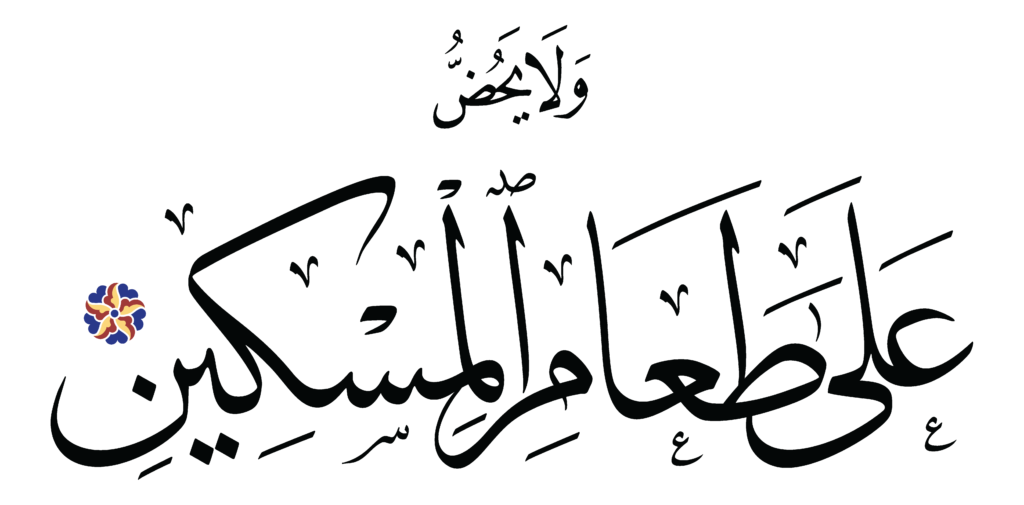 وَلَا يَحُضُّ
عَلَىٰ طَعَامِ ٱلْمِسْكِينِ